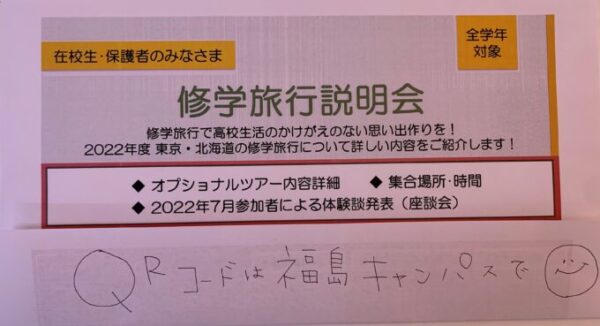 在校生・保護者のみなさま
全学年
対象
修学旅行説明会
修学旅行で高校生活のかけがえのない思い出作りを！
2022年度 東京・北海道の修学旅行について詳しい内容をご紹介します！
◆ オプショナルツアー内容詳細 ◆ 集合場所・時間
◆ 2022年7月参加者による体験談発表（座談会）
QRコードは福島キャンパスで